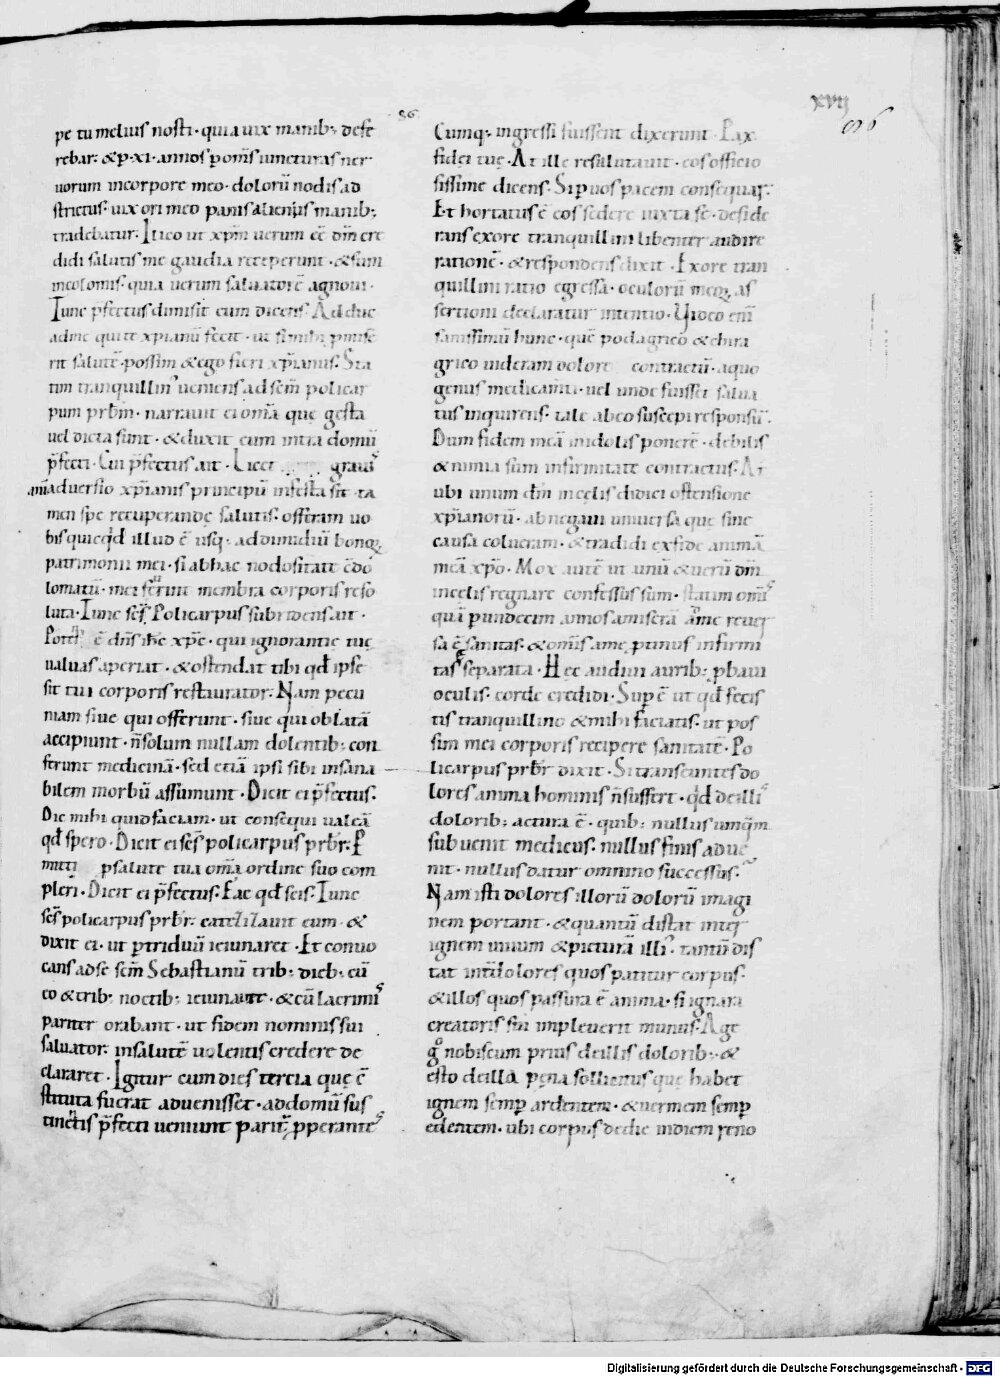 xvij
86
pe tu melius nosti · quia uix manib; defe
rebar · & p · xi · annos poms iuncturas ner
uorum incorpore meo · dolorū nodis ad
strictus · uix ori meo panis alienis manib;
tradebatur · Ilico ut xp̄m uerum eē dm̄ cre
didi salutis me gaudia receperunt · & sum
incolomis · quia uerum saluatorē agnoui ·
Tunc p̄fectus dimisit eum dicens · Adduc
adme qui te xp̄ianū fecit · ut si mihi pmise
rit salutē · possim & ego fieri xp̄ianus · Sta
tim tranquillin᾽ ueniens ad scm̄ policar
pum prb̄m · narrauit ei om̄a quę gesta
uel dicta sunt · & duxit eum intra domū
p̄fecti · Cui p̄fectus ait · Licet grauis
animaduersio xp̄ianis principū infesta sit · ta
men spe recuperandę salutis · offeram uo
bis quicqd illud ē usq; addimidiū bonoꝝ
patrimonii mei · si abhac nodositate cōdo
lomatū · mei fuerint membra corporis reso
luta · Tunc scs̄ Policarpus subridens ait ·
Potens ē dn̄s ih̄c xp̄c · qui ignorantię tuę
ualuas aperiat · & ostendat tibi qd̄ ipse
sit tui corporis restaurator · Nam pecu
niam siue qui offerunt · siue qui oblatā
accipiunt · n̄ solum nullam dolentib; con
ferunt medicinā · sed etiā ipsi sibi insana
bilem morbū assumunt · Dicit ei p̄fectus ·
Dic mihi quid faciam · ut consequi ualeā
qd̄ spero · Dicit ei scs̄ policarpus prb̄r · P
mitti psalute tua om̄a ordine suo com
pleri · Dicit ei p̄fectus · Fac qd̄ scis · Tunc
scs̄ policarpus prb̄r · catezizauit eum · &
dixit ei · ut ptriduū ieiunaret · Et conuo
cans adse scm̄ Sebastianū trib; dieb; cū
eo & trib; noctib; ieiunauit · & cū lacrimis
pariter orabant · ut fidem nominis sui
saluator · insalutē uolentis credere de
clararet · Igitur cum dies tercia quę ē
stituta fuerat aduenisset · addomū sus
tinentis p̄fecti ueniunt parit᾽ pperantes
Cumq; ingressi fuissent dixerunt · Pax
fidei tuę · At ille resalutauit · eos officio
sissime dicens · Si puos pacem consequar ·
Et hortatus ē eos sedere iuxta se · deside
rans exore tranquillini libenter audire
rationē · & respondens dixit · Exore tran
quillini ratio egressa · oculorū meoꝝ as
sertioni declaratur intentio · Video enī
sanissimū hunc · quē podagrico & chira
grico uideram dolore contractū · aquo
genus medicam̄ti · uel unde fuisset salua
tus inquirens · tale abeo suscepi responsū ·
Dum fidem meā inidolis ponerē · debilis
& nimia sum infirmitate contractus · At
ubi unum dm̄ incęlis didici ostensione
xp̄ianorū · abnegaui uniuersa quę sine
causa colueram · & tradidi exfide animā
meā xp̄o · Mox autē ut unū & uerū dm̄
incęlis regnare confessus sum · statim omīs
quā pundecim annos amiserā ame reuer
sa ē sanitas · & omīs ame ptinus infirmi
tas separata · Hec audiui aurib; pbaui
oculis · corde credidi · Supē ut qd̄ fecis
tis tranquillino & mihi faciatis · ut pos
sim mei corporis recipere sanitatē · Po
licarpus prb̄r dixit · Si transeuntes do
lores anima hominis n̄ suffert · qd̄ deillis
dolorib; actura ē · quib; nullus umqm̄
subuenit medicus · nullus finis adue
nit · nullus datur omnino successus ·
Nam isti dolores illorū dolorū imagi
nem portant · & quantū distat inter
ignem uiuum & picturā illi᾽ · tantū dis
tat int̄ dolores quos patitur corpus ·
& illos quos passura ē anima · si ignara
creatoris sui impleuerit munus · Age
gͦ nobiscum prius deillis dolorib; · &
esto deilla pęna sollicitus quę habet
ignem semp ardentem · & uermem semp
edentem · ubi corpus dedie indiem reno
Digitalisierung gefördert durch die Deutsche Forschungsgemeinschaft - DFG